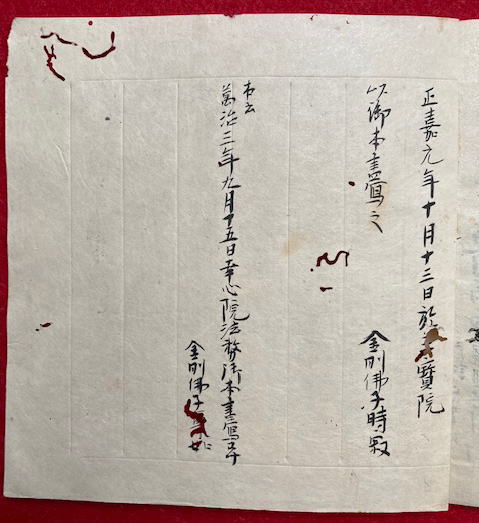 正嘉元年十月十三日於 寶院
以御本書寫之
金剛佛子時
本云
萬治三年九月十五日幸心院法務御本書寫了
金剛佛子